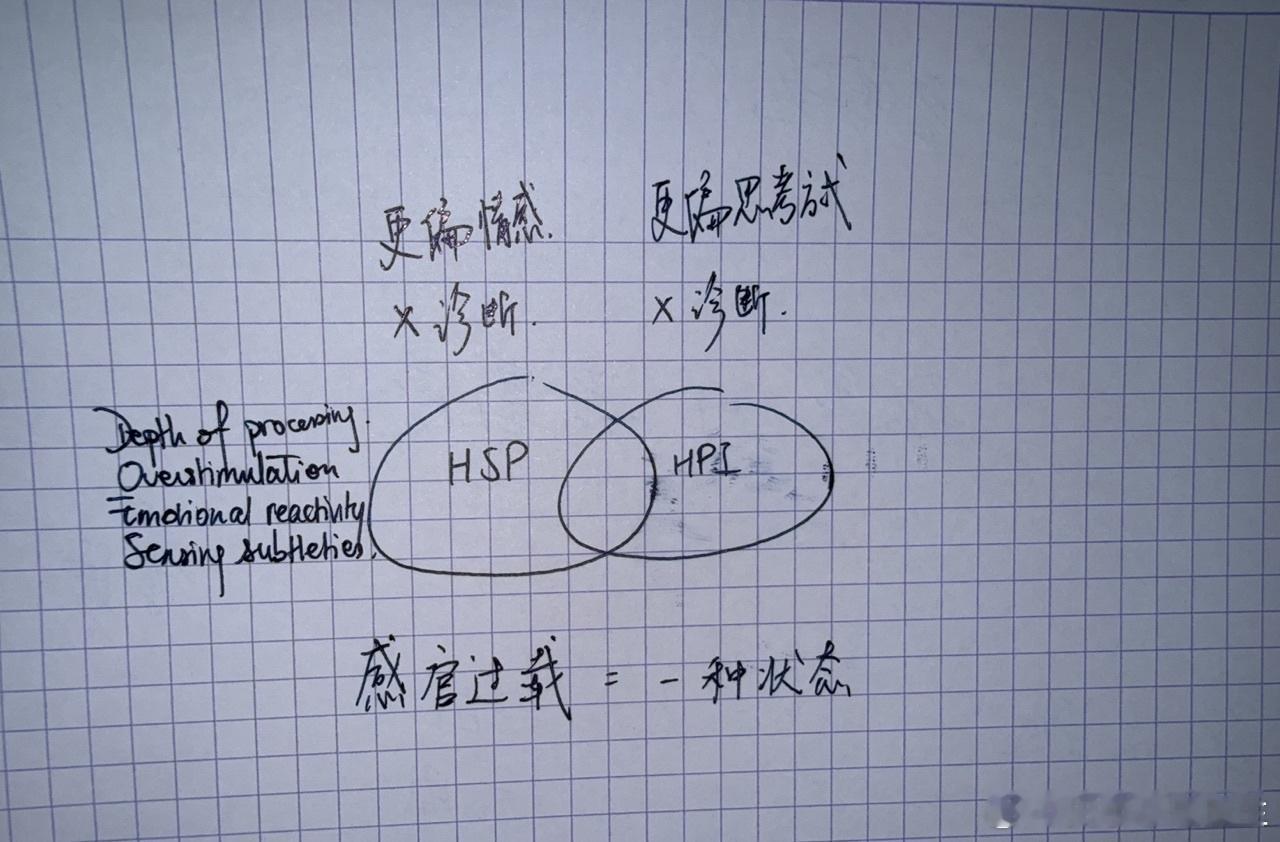 更偏情感
更偏思考式
×诊断.
×诊断.
HSP
HPI
Depth of processing.
Overstimulation
Emotional reactivity
Sensing subtleties.
感官过载 = 一种状态